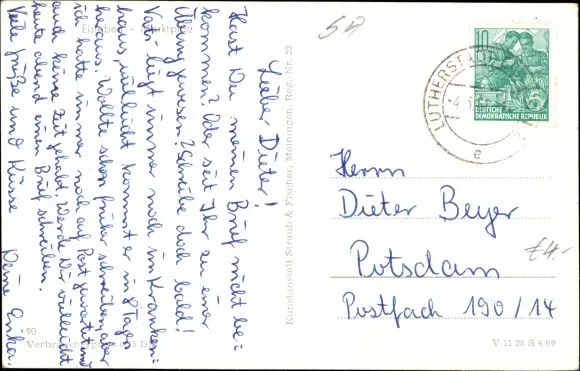 Lieber Dieter!
Hast Du meinen Brief nicht be-
kommen? Oder seit Ihr zu einer
Übung gewesen? Schreibe doch bald!
Vati liegt immer noch im Kranken-
haus, vielleicht kommt er in 8 Tagen
heraus. Wollte schon früher schreiben, aber
ich hatte immer noch auf Post gewartet und
auch keine Zeit gehabt. Werde Dir vielleicht
heute abend einen Brief schreiben.
Viele Grüße und Küsse Deine Erika.
Kunstanstalt Straub & Fischer, Meiningen, Reg.-Nr. 23
90
V 11 28 S 4/60
10
DEUTSCHE
DEMOKRATISCHE REPUBLIK
LUTHERSTADT
e
Herrn
Dieter Beyer
Potsdam
Postfach 190/14
€4.-